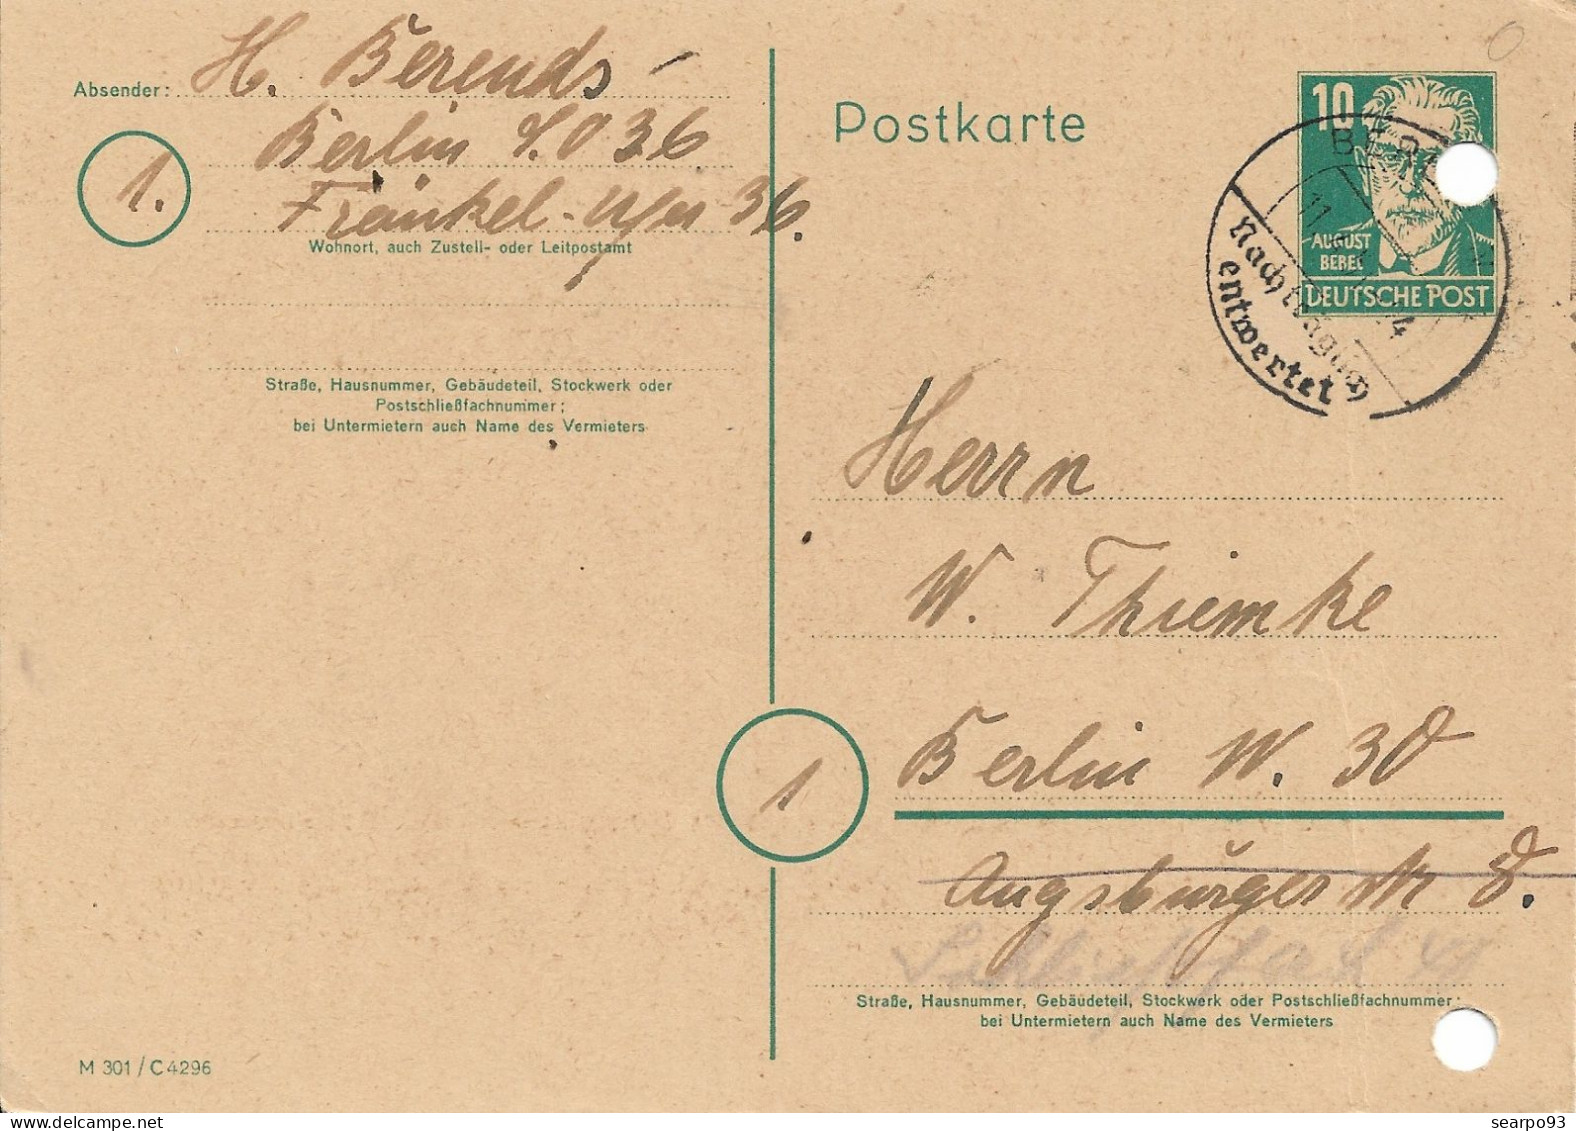 Absender: H. Berends
Berlin S.O 36
1.
Fränkel-Ufer 36.
Wohnort, auch Zustell- oder Leitpostamt
Straße, Hausnummer, Gebäudeteil, Stockwerk oder
Postschließfachnummer;
bei Untermietern auch Name des Vermieters
M 301 / C 4296
Postkarte
10
AUGUST
BEBEL
DEUTSCHE POST
Nachträglich
entwertet
Herrn
W. Thiemke
1
Berlin W. 30
Augsburger Str 8.
Schließfach
Straße, Hausnummer, Gebäudeteil, Stockwerk oder Postschließfachnummer;
bei Untermietern auch Name des Vermieters
searpo93